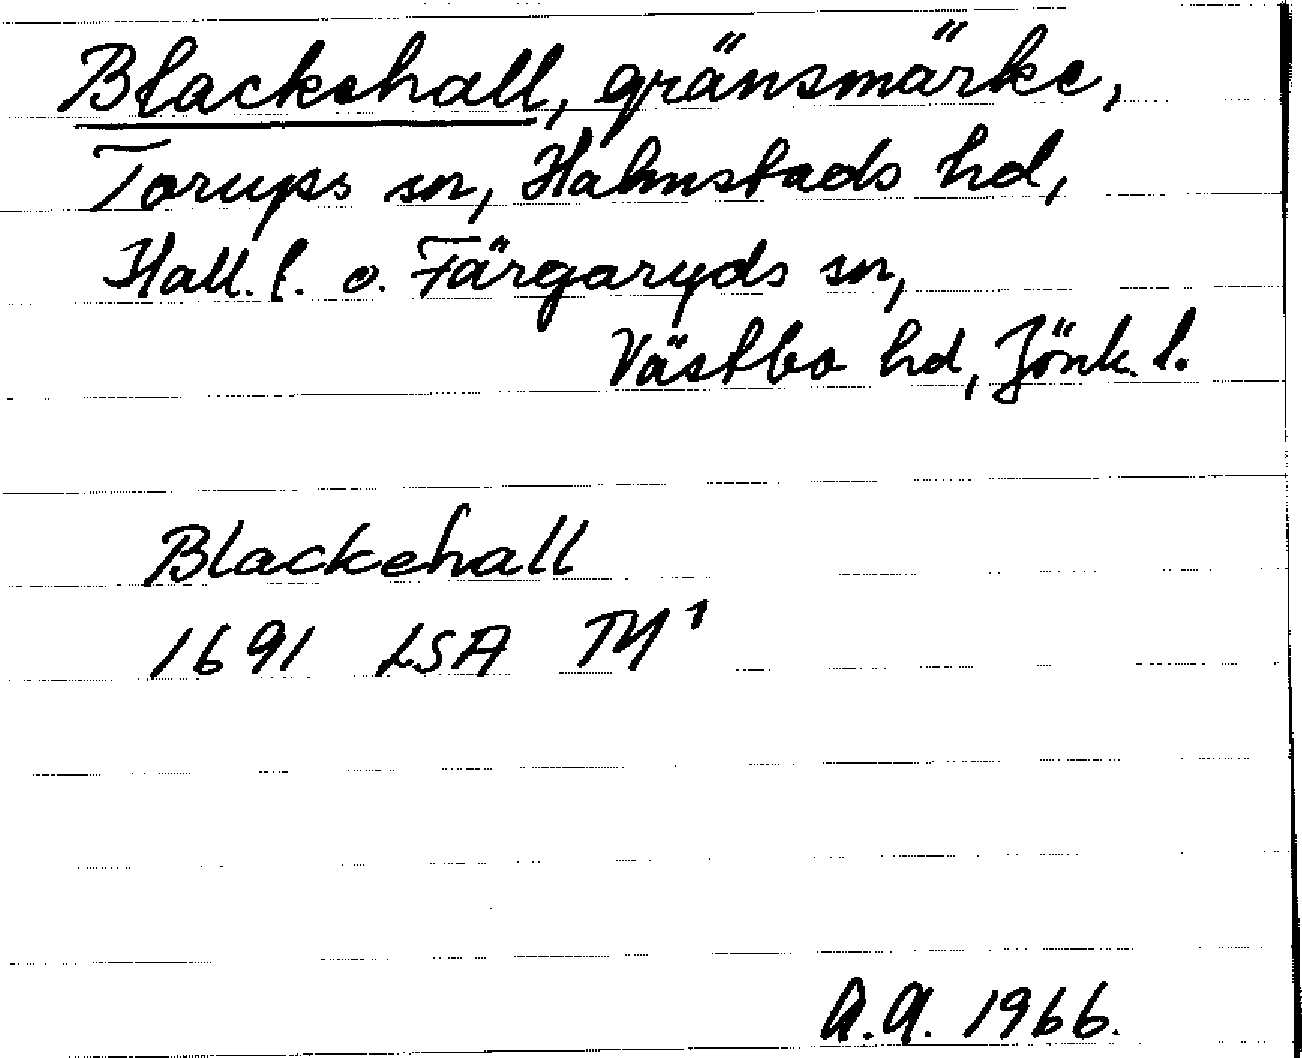 Blackehall, gränsmärke,
Torups sn, Halmstads hd,
Hall. l. o. Färgaryds sn,
Västbo hd, Jönk. l.
Blackehall
1691 LSA T4¹
A.A. 1966.